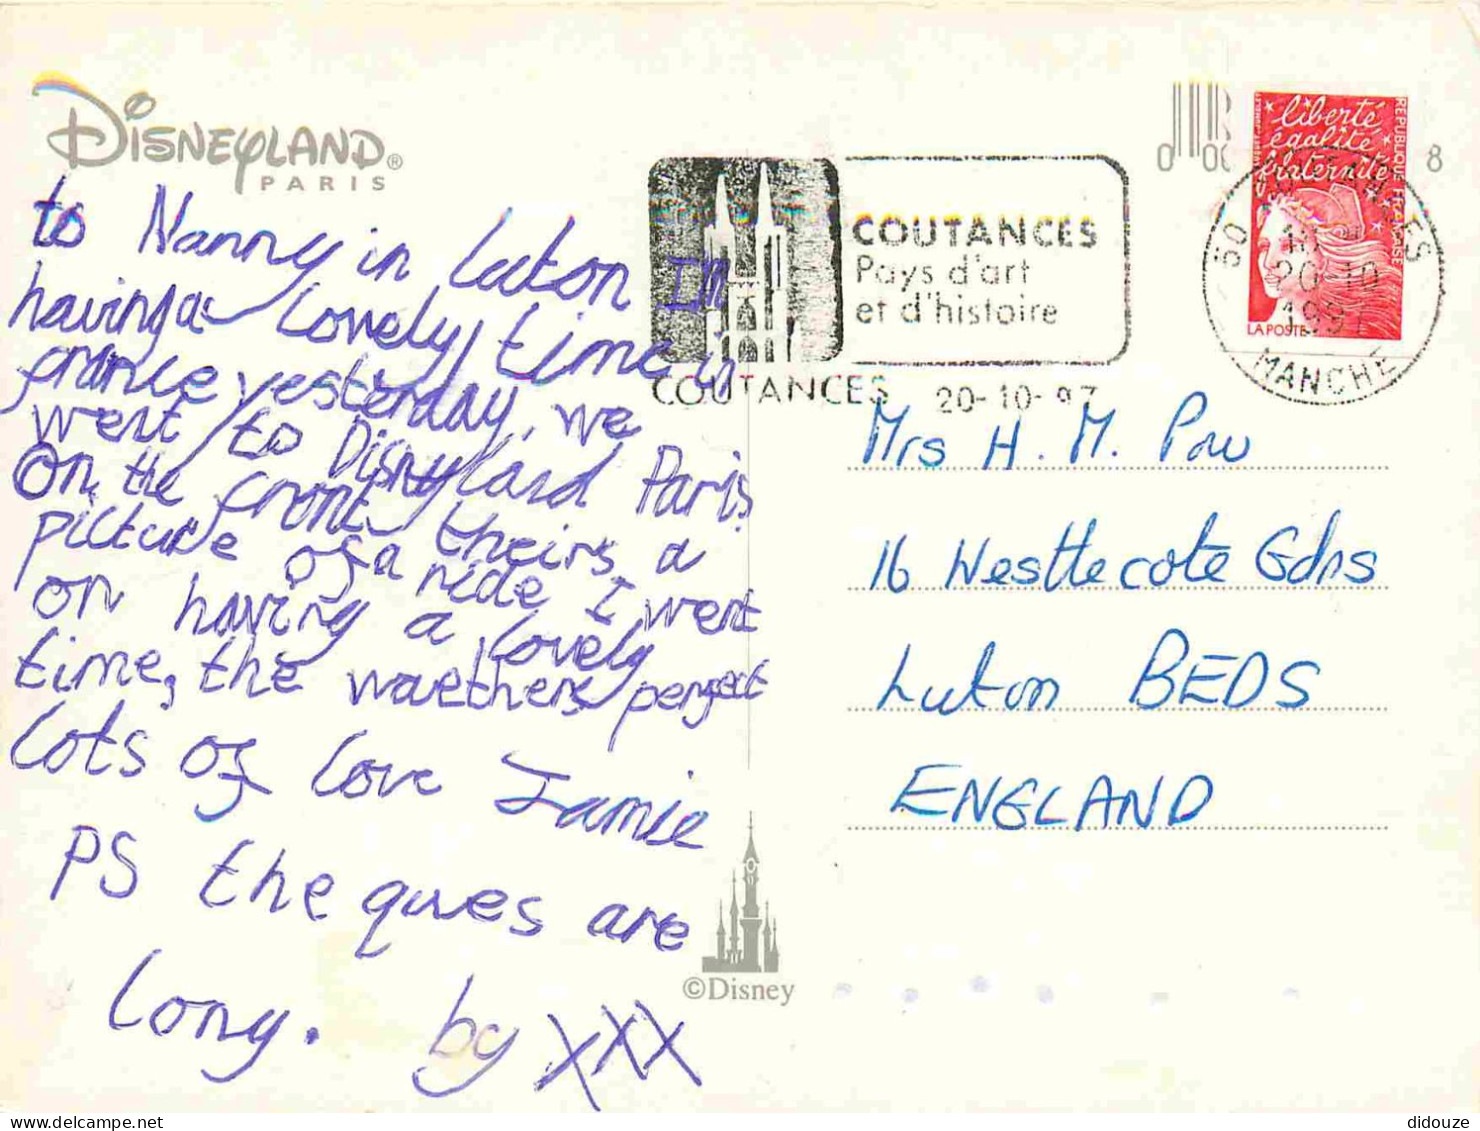 DISNEYLAND®
PARIS
to Nanny in Luton Im
havinga Lovely time in
france yesterday, we
went to Disnyland Paris
On the front theirs a
picture of a ride I went
on having a lovely
time, the weathers perfect
Lots of love Jamie
PS the ques are
Long. by XXX
COUTANCES
Pays d'art
et d'histoire
COUTANCES 20-10-97
liberté
égalité
fraternité
REPUBLIQUE FRANÇAISE
LA POSTE
50 COUTANCES
20-10
1997
MANCHE
0
8
Mrs H. M. Pow
16 Westlecote Gdns
Luton BEDS
ENGLAND
©Disney
didouze